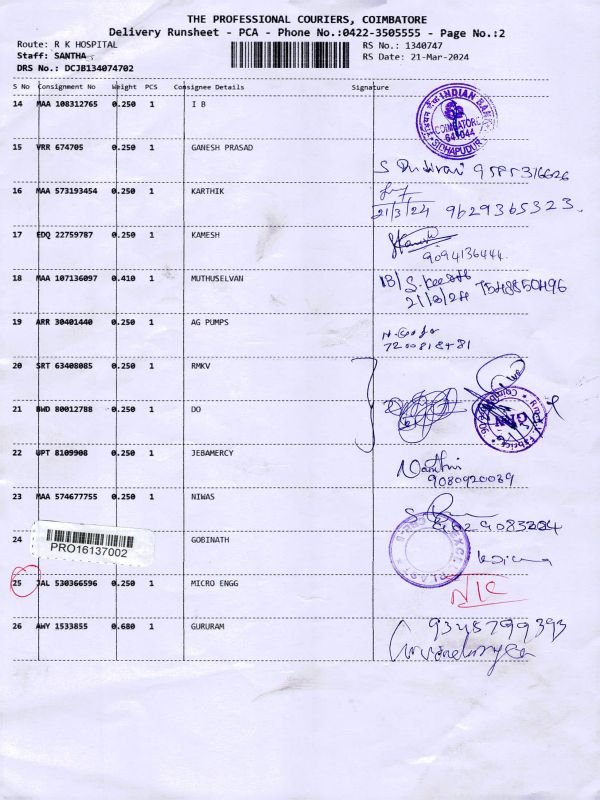 THE PROFESSIONAL COURIERS, COIMBATORE
Delivery Runsheet - PCA - Phone No.:0422-3505555 - Page No.:2
Route: R K HOSPITAL RS No.: 1340747
Staff: SANTHA RS Date: 21-Mar-2024
DRS No.: DCJB134074702
S No Consignment No Weight PCS Consignee Details Signature
14 MAA 108312765 0.250 1 I B
INDIAN BANK COIMBATORE 641044 SIDHAPUDUR
15 VRR 674705 0.250 1 GANESH PRASAD
9585316626
16 MAA 573193454 0.250 1 KARTHIK
21/3/24 9629365323
17 EDQ 22759787 0.250 1 KAMESH
9094136444
18 MAA 107136097 0.410 1 MUTHUSELVAN
18/ 21/3/24 7548850496
19 ARR 30401440 0.250 1 AG PUMPS
7200818481
20 SRT 63408085 0.250 1 RMKV
21 BWD 80012788 0.250 1 DO
22 UPT 8109908 0.250 1 JEBAMERCY
9080920039
23 MAA 574677755 0.250 1 NIWAS
24 PRO16137002 GOBINATH
25 JAL 530366596 0.250 1 MICRO ENGG
26 AWY 1533855 0.680 1 GURURAM
9345799393